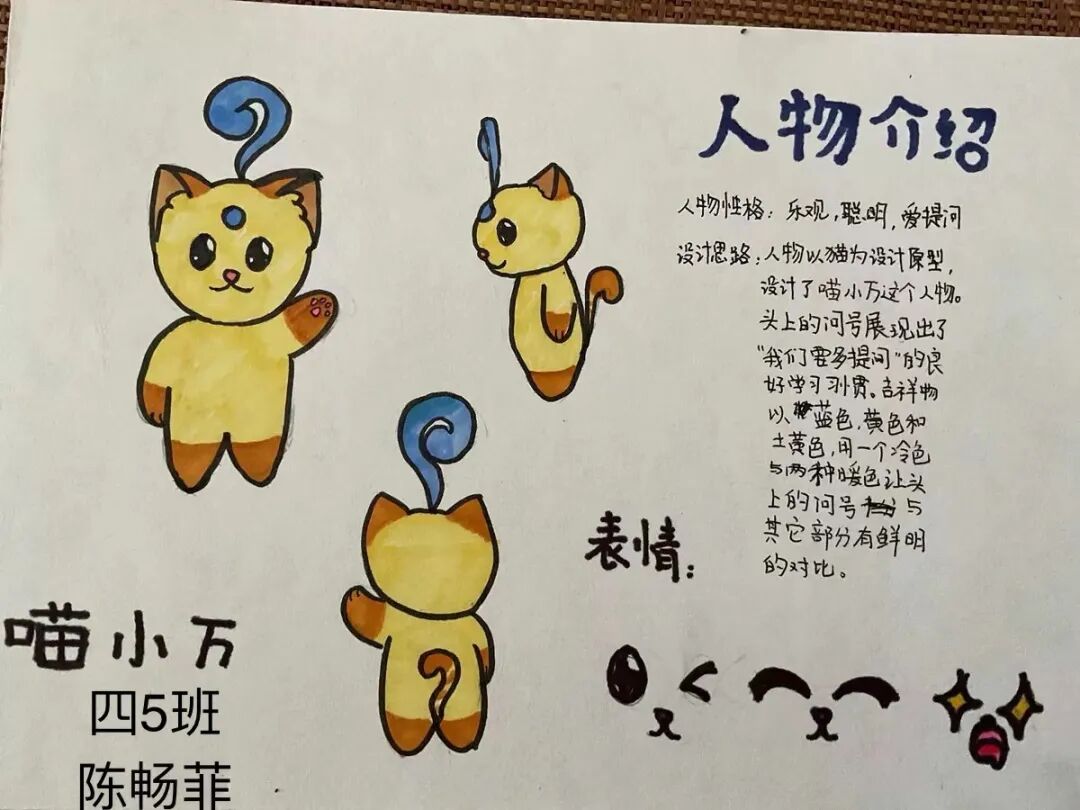 人物介绍
人物性格：乐观，聪明，爱提问
设计思路：人物以猫为设计原型，
设计了喵小万这个人物。
头上的问号展现出了
“我们要多提问”的良
好学习习惯。吉祥物
以蓝色，黄色和
土黄色，用一个冷色
与两种暖色让头
上的问号与
其它部分有鲜明
的对比。
表情：
喵小万
四5班
陈畅菲